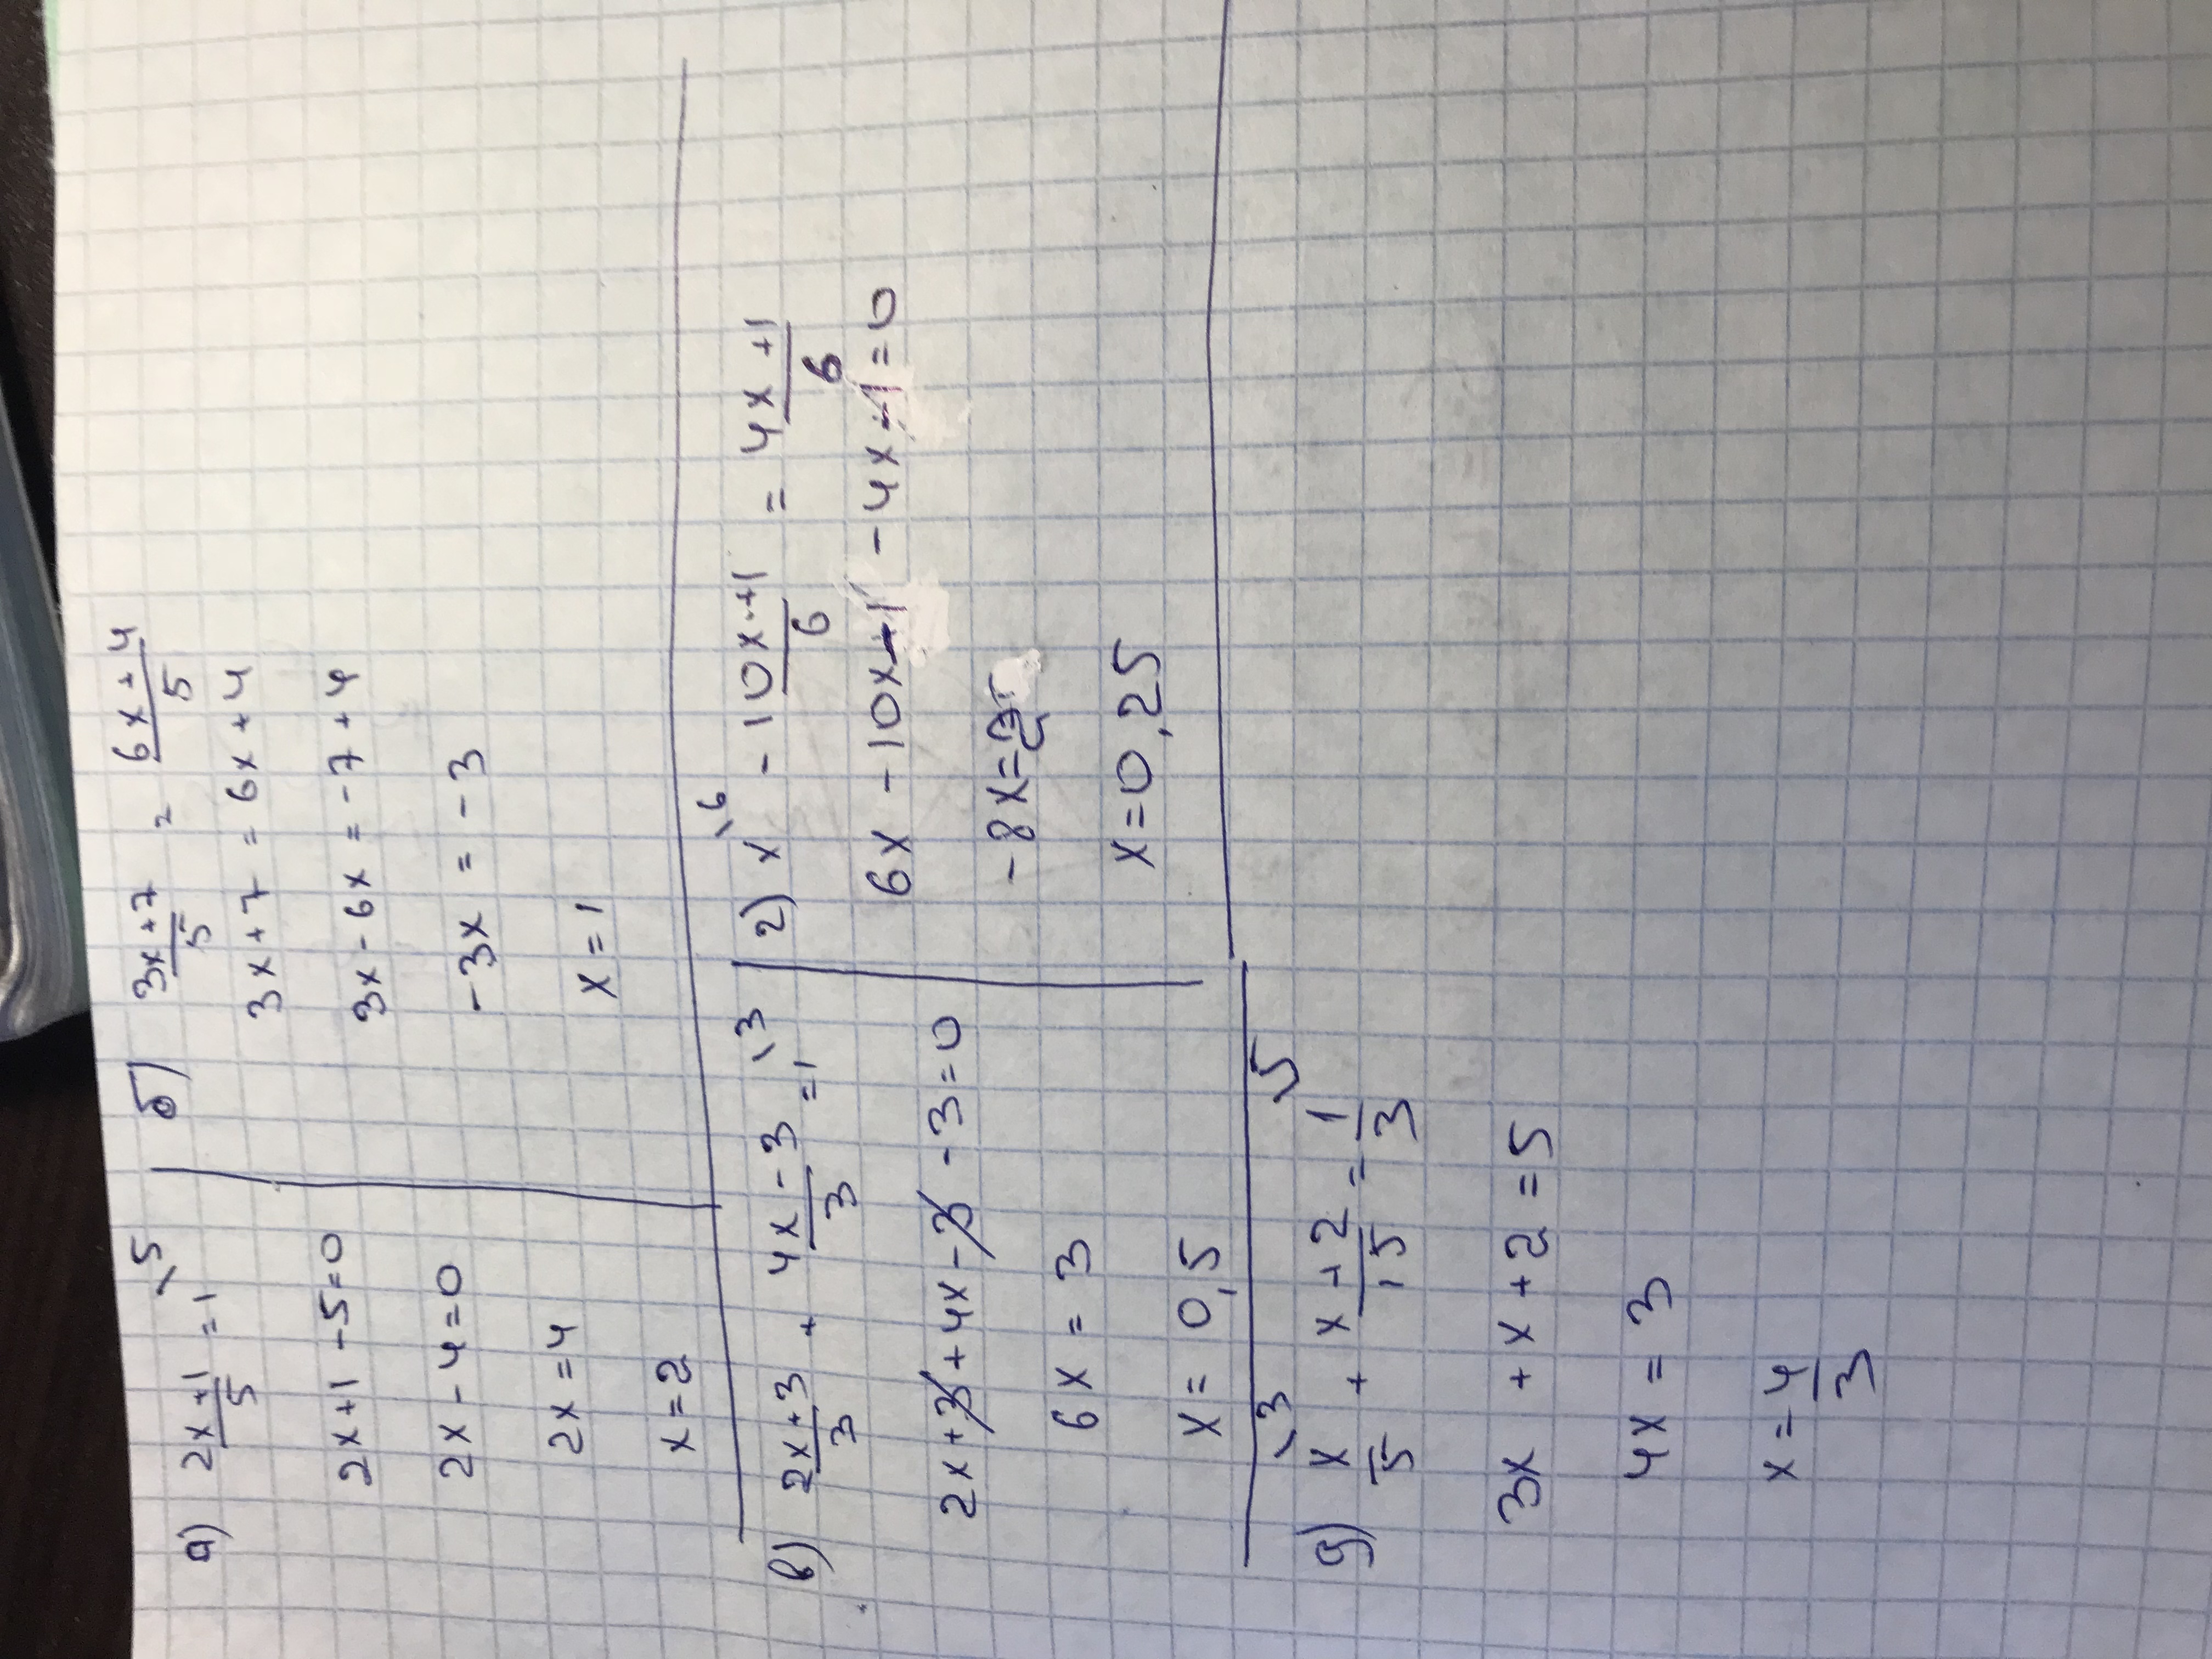 а) 2x+1/5 = 1 \5
2x+1-5=0
2x-4=0
2x=4
x=2
б) 3x+7/5 = 6x+4/5
3x+7=6x+4
3x-6x=-7+4
-3x=-3
x=1
в) 2x+3/3 + 4x-3/3 = 1 \3
2x+3+4x-3-3=0
6x=3
x=0,5
г) x \6 - 10x+1/6 = 4x+1/6
6x-10x-1-4x-1=0
-8x=2
x=0,25
д) x/5 \3 + x+2/15 = 1/3 \5
3x+x+2=5
4x=3
x=4/3